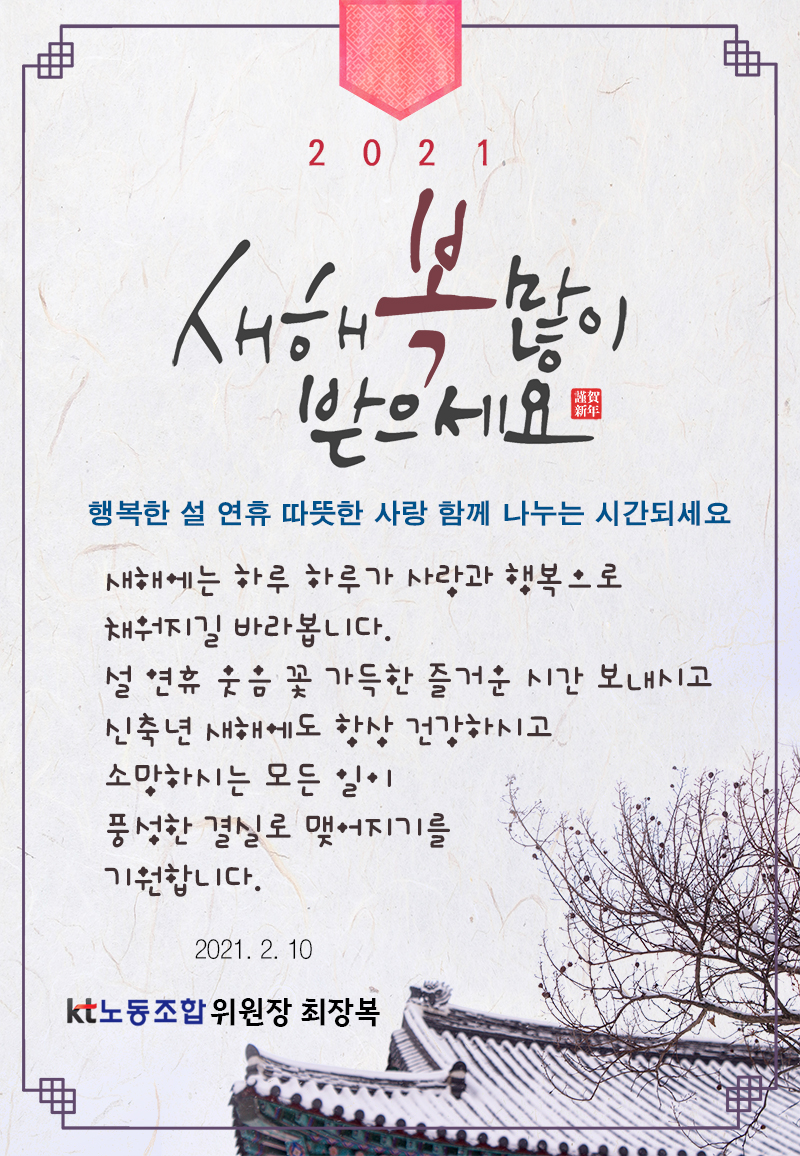 2021
새해 복 많이
받으세요
謹賀
新年
행복한 설 연휴 따뜻한 사랑 함께 나누는 시간되세요
새해에는 하루 하루가 사랑과 행복으로
채워지길 바라봅니다.
설 연휴 웃음 꽃 가득한 즐거운 시간 보내시고
신축년 새해에도 항상 건강하시고
소망하시는 모든 일이
풍성한 결실로 맺어지기를
기원합니다.
2021. 2. 10
kt노동조합 위원장 최장복